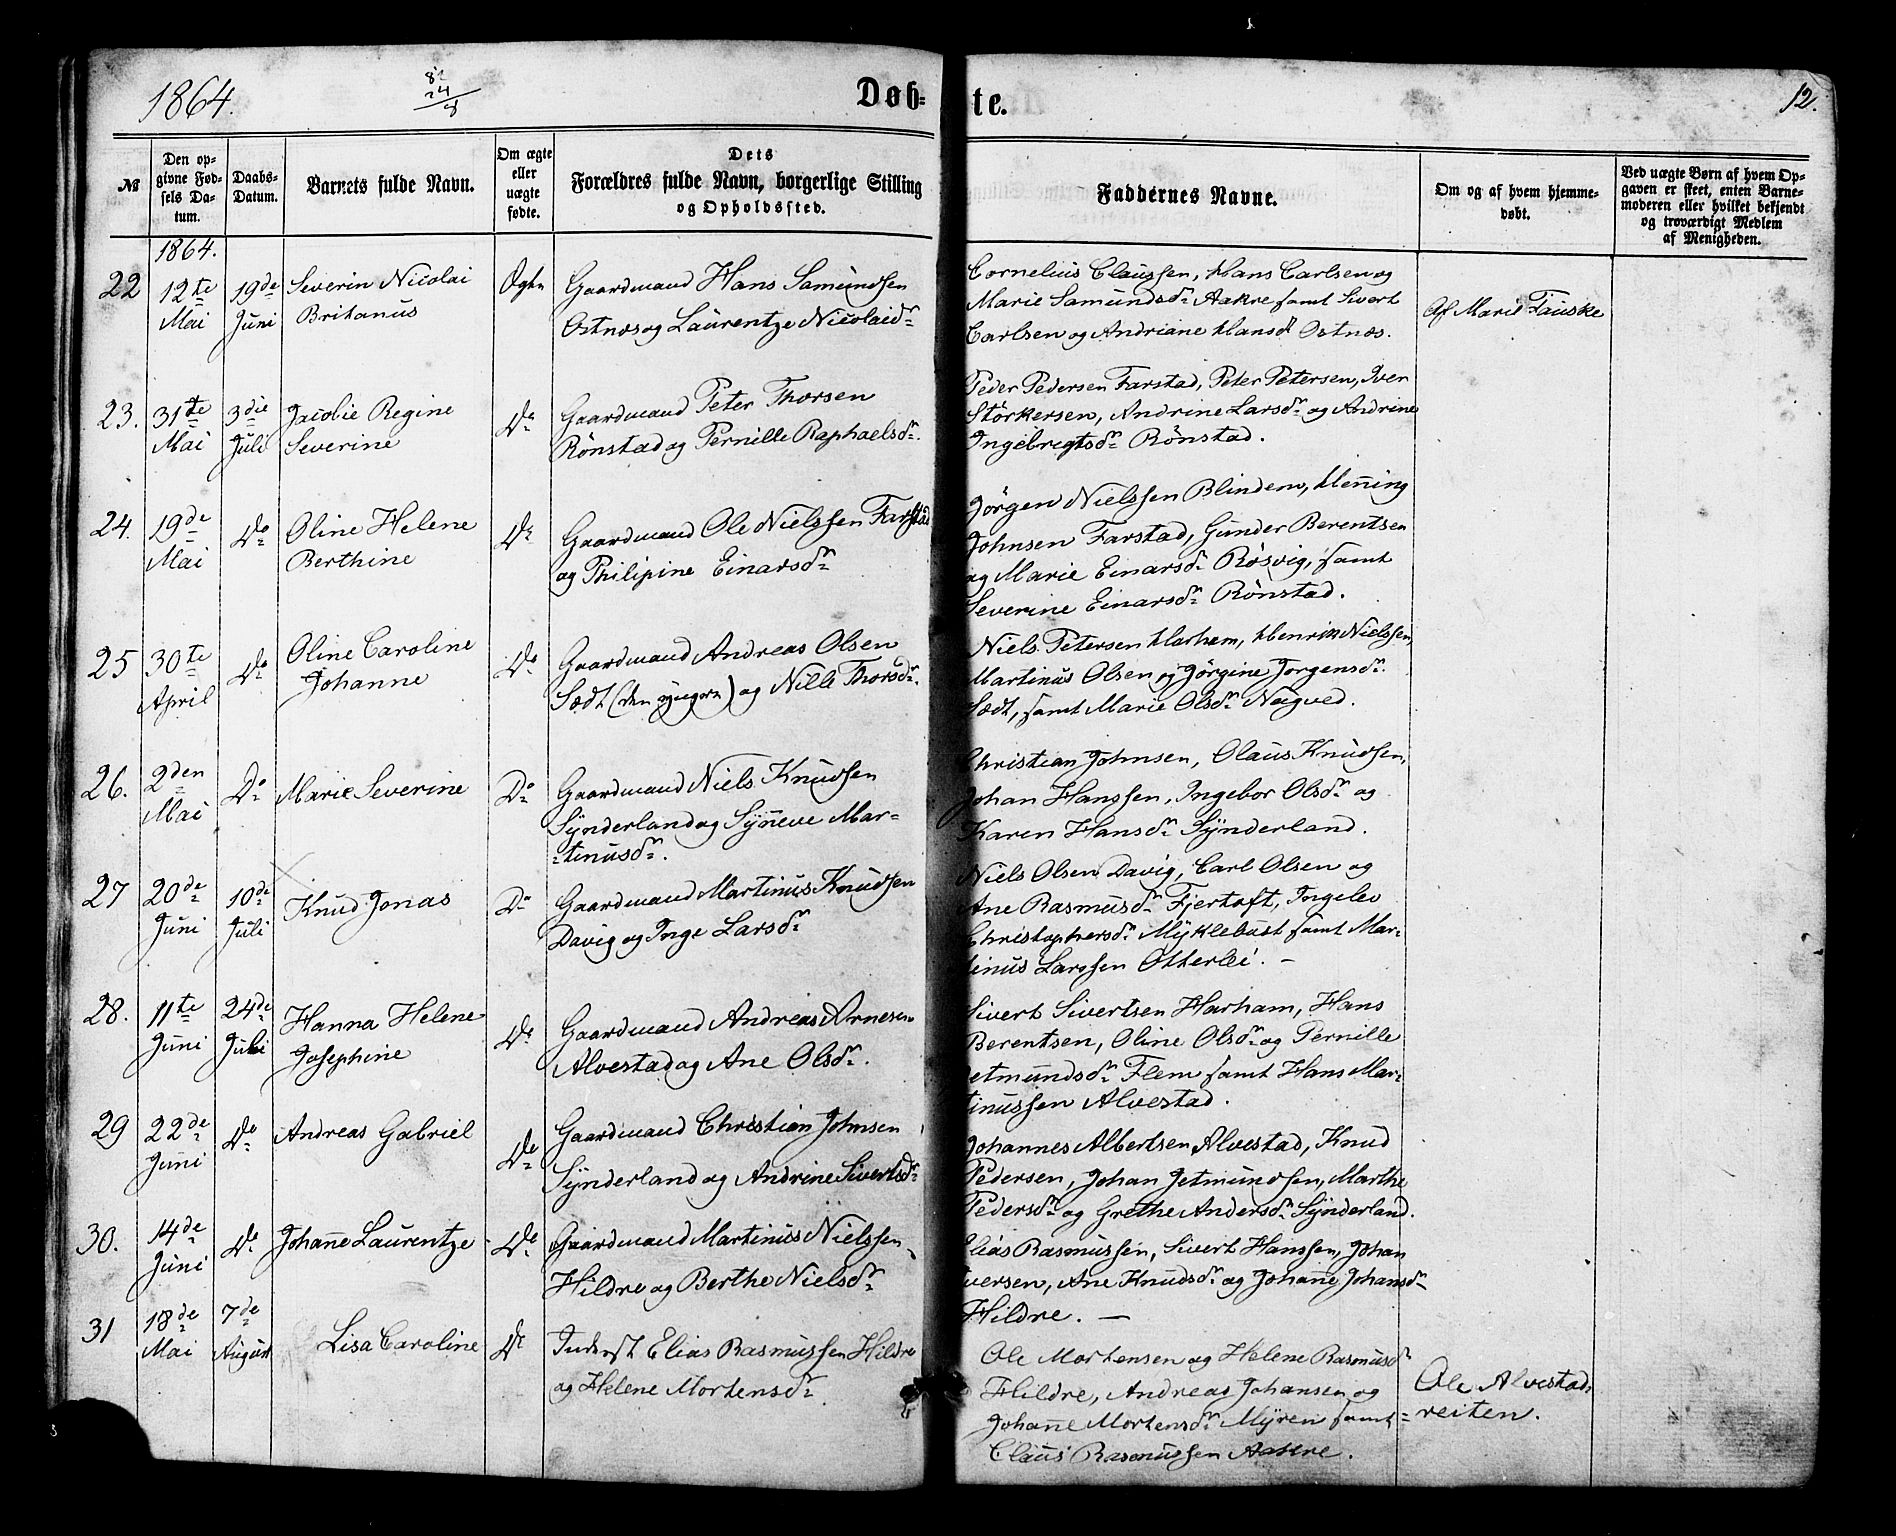 1864.
82
24
8
Døb-
te.
12.
№
Den op-
givne Fød-
sels Da-
tum.
Daabs-
Datum.
Barnets fulde Navn.
Om ægte
eller
uægte
fødte.
Dets
Forældres fulde Navn, borgerlige Stilling
og Opholdssted.
Faddernes Navne.
Om og af hvem hjemme-
døbt.
Ved uægte Børn af hvem Op-
gaven er skeet, enten Barne-
moderen eller hvilket bekjendt
og troværdigt Medlem
af Menigheden.
1864.
22
12te
Mai
19de
Juni
Severin Nicolai
Britanus
Ægte
Gaardmand Hans Samundsen
Ostnæs og Laurentze Nicolaidr.
Cornelius Claussen, Hans Carlsen og
Marie Samundsdr. Aakre samt Sivert
Carlsen og Andriane Hansdr. Ostnæs.
Af Marie Fauske
23.
31te
Mai
3die
Juli
Jacobie Regine
Severine
Do
Gaardmand Peter Thorsen
Rönstad og Pernille Raphaelsdr.
Peder Pedersen Farstad, Peter Petersen, Iver
Störkersen, Andrine Larsdr. og Andrine
Ingebregtsdr. Rönstad.
24.
19de
Mai
Do
Oline Helene
Berthine
Do
Gaardmand Ole Nielssen Farstad
og Philipine Einarsdr.
Jörgen Nielssen Blindem, Henning
Johnsen Farstad, Gunder Berentsen
og Marie Einarsdr. Rösvig, samt
Severine Einarsdr. Rönstad.
25
30te
April
Do
Oline Caroline
Johanne
Do
Gaardmand Andreas Olsen
Sædt (den yngere) og Nille Thorsdr.
Niels Petersen Harham, Henrik Nielssen,
Martinus Olsen og Jörgine Jorgensdr.
Sædt, samt Marie Olsdr. Nogved.
26.
2den
Mai
Do
Marie Severine
Do
Gaardmand Niels Knudsen
Synderland og Synneve Mar-
-tinusdr.
Christian Johnsen, Olaus Knudsen,
Johan Hanssen, Ingebor Olsdr. og
Karen Hansdr. Synderland.
27
20de
Juni
10de
Juli
Knud Jonas
Do
Gaardmand Martinus Knudsen
Davig og Inge Larsdr.
Niels Olsen Davig, Carl Olsen og
Ane Rasmusdr. Fjertoft, Ingelev
Christophersdr. Myklebust samt Mar-
tinus Larssen Otterlei. —
28.
11te
Juni
24de
Juli
Hanna Helene
Josephine
Do
Gaardmand Andreas Arnesen
Alvestad og Ane Olsdr.
Sivert Sivertsen Harham, Hans
Berentsen, Oline Olsdr. og Pernille
Jetmundsdr. Flem samt Hans Mar-
tinussen Alvestad.
29
22de
Juni
Do
Andreas Gabriel
Do
Gaardmand Christian Johnsen
Synderland og Andrine Sivertsdr.
Johannes Albertsen Alvestad, Knud
Pedersen, Johan Jetmundsen, Marthe
Pedersdr. og Grethe Andersdr. Synderland.
30.
14de
Juni
Do
Johanne Laurentze
Do
Gaardmand Martinus Nielssen
Hildre og Berthe Nielsdr.
Elias Rasmussen, Sivert Hanssen, Johan
Iversen, Ane Knudsdr. og Johanne Johansdr.
Hildre. —
31
18de
Mai
7de
August
Lisa Caroline
Do
Inderst Elias Rasmussen Hildre
og Helene Mortensdr.
Ole Mortensen og Helene Rasmusdr.
Hildre, Andreas Johansen og
Johanne Mortensdr. Myren samt
Claus Rasmussen Aakre.
Ole Alvestad,
reiten.